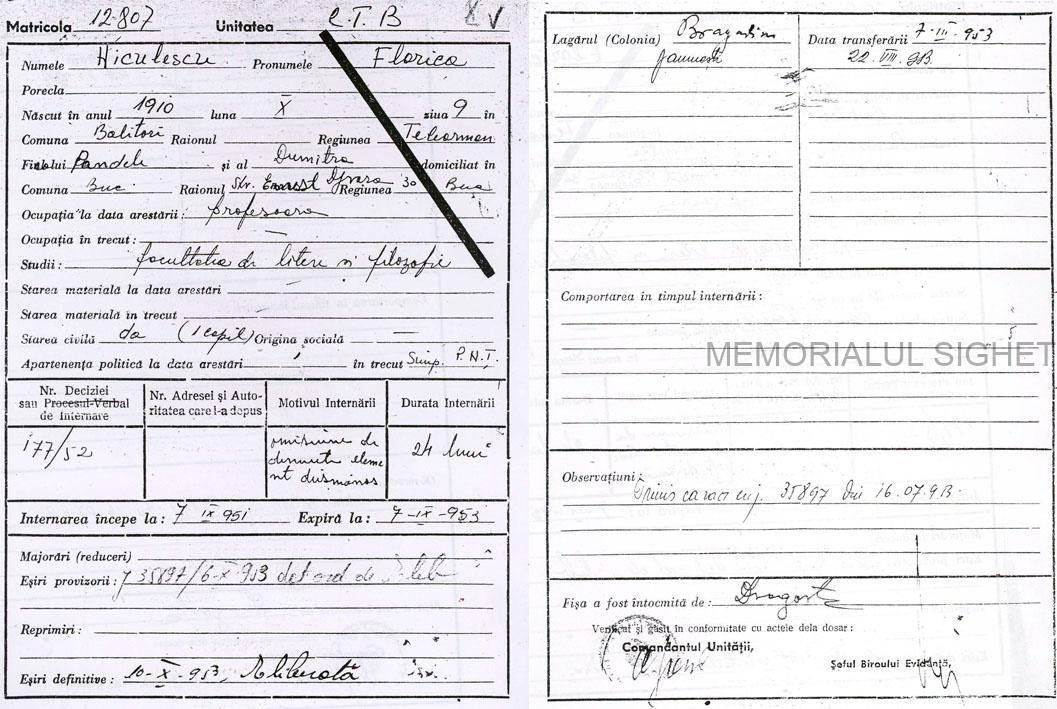 Matricola 12807 Unitatea C.T.B
Numele Niculescu Pronumele Florica
Porecla
Născut în anul 1910 luna X ziua 9 în
Comuna Balitori Raionul Regiunea Teleorman
Fiul lui Pandele și al Dumitra domiciliat în
Comuna Buc Raionul Str. Regiunea 30 Buc
Ocupația la data arestării: profesoara
Ocupația în trecut: —
Studii: facultatea de litere si filozofie
Starea materială la data arestării —
Starea materială în trecut
Starea civilă da (1 copil) Origina socială —
Apartenența politică la data arestării în trecut Simp. P.N.T.
Nr. Deciziei
sau Procesul-Verbal
de Internare
Nr. Adresei și Auto-
ritatea care l-a depus
Motivul Internării
Durata Internării
177/52
omisiune de
denunt eleme
nt dusmanos
24 luni
Internarea începe la: 7 IX 951 Expiră la: 7-IX-953
Majorări (reduceri)
Eșiri provizorii: 35897/6-X-953 de
Reprimiri:
Eșiri definitive: 10-X-953, Eliberată
Lagărul (Colonia) Data transferării 7-III-953
22. VIII. 953.
Comportarea în timpul internării:
5
MEMORIALUL SIGHET
Observațiuni: 35897 din 16.07.953.
Fișa a fost întocmită de:
Verificat și găsit în conformitate cu actele dela dosar:
Comandantul Unității,
Șeful Biroului Evidență,